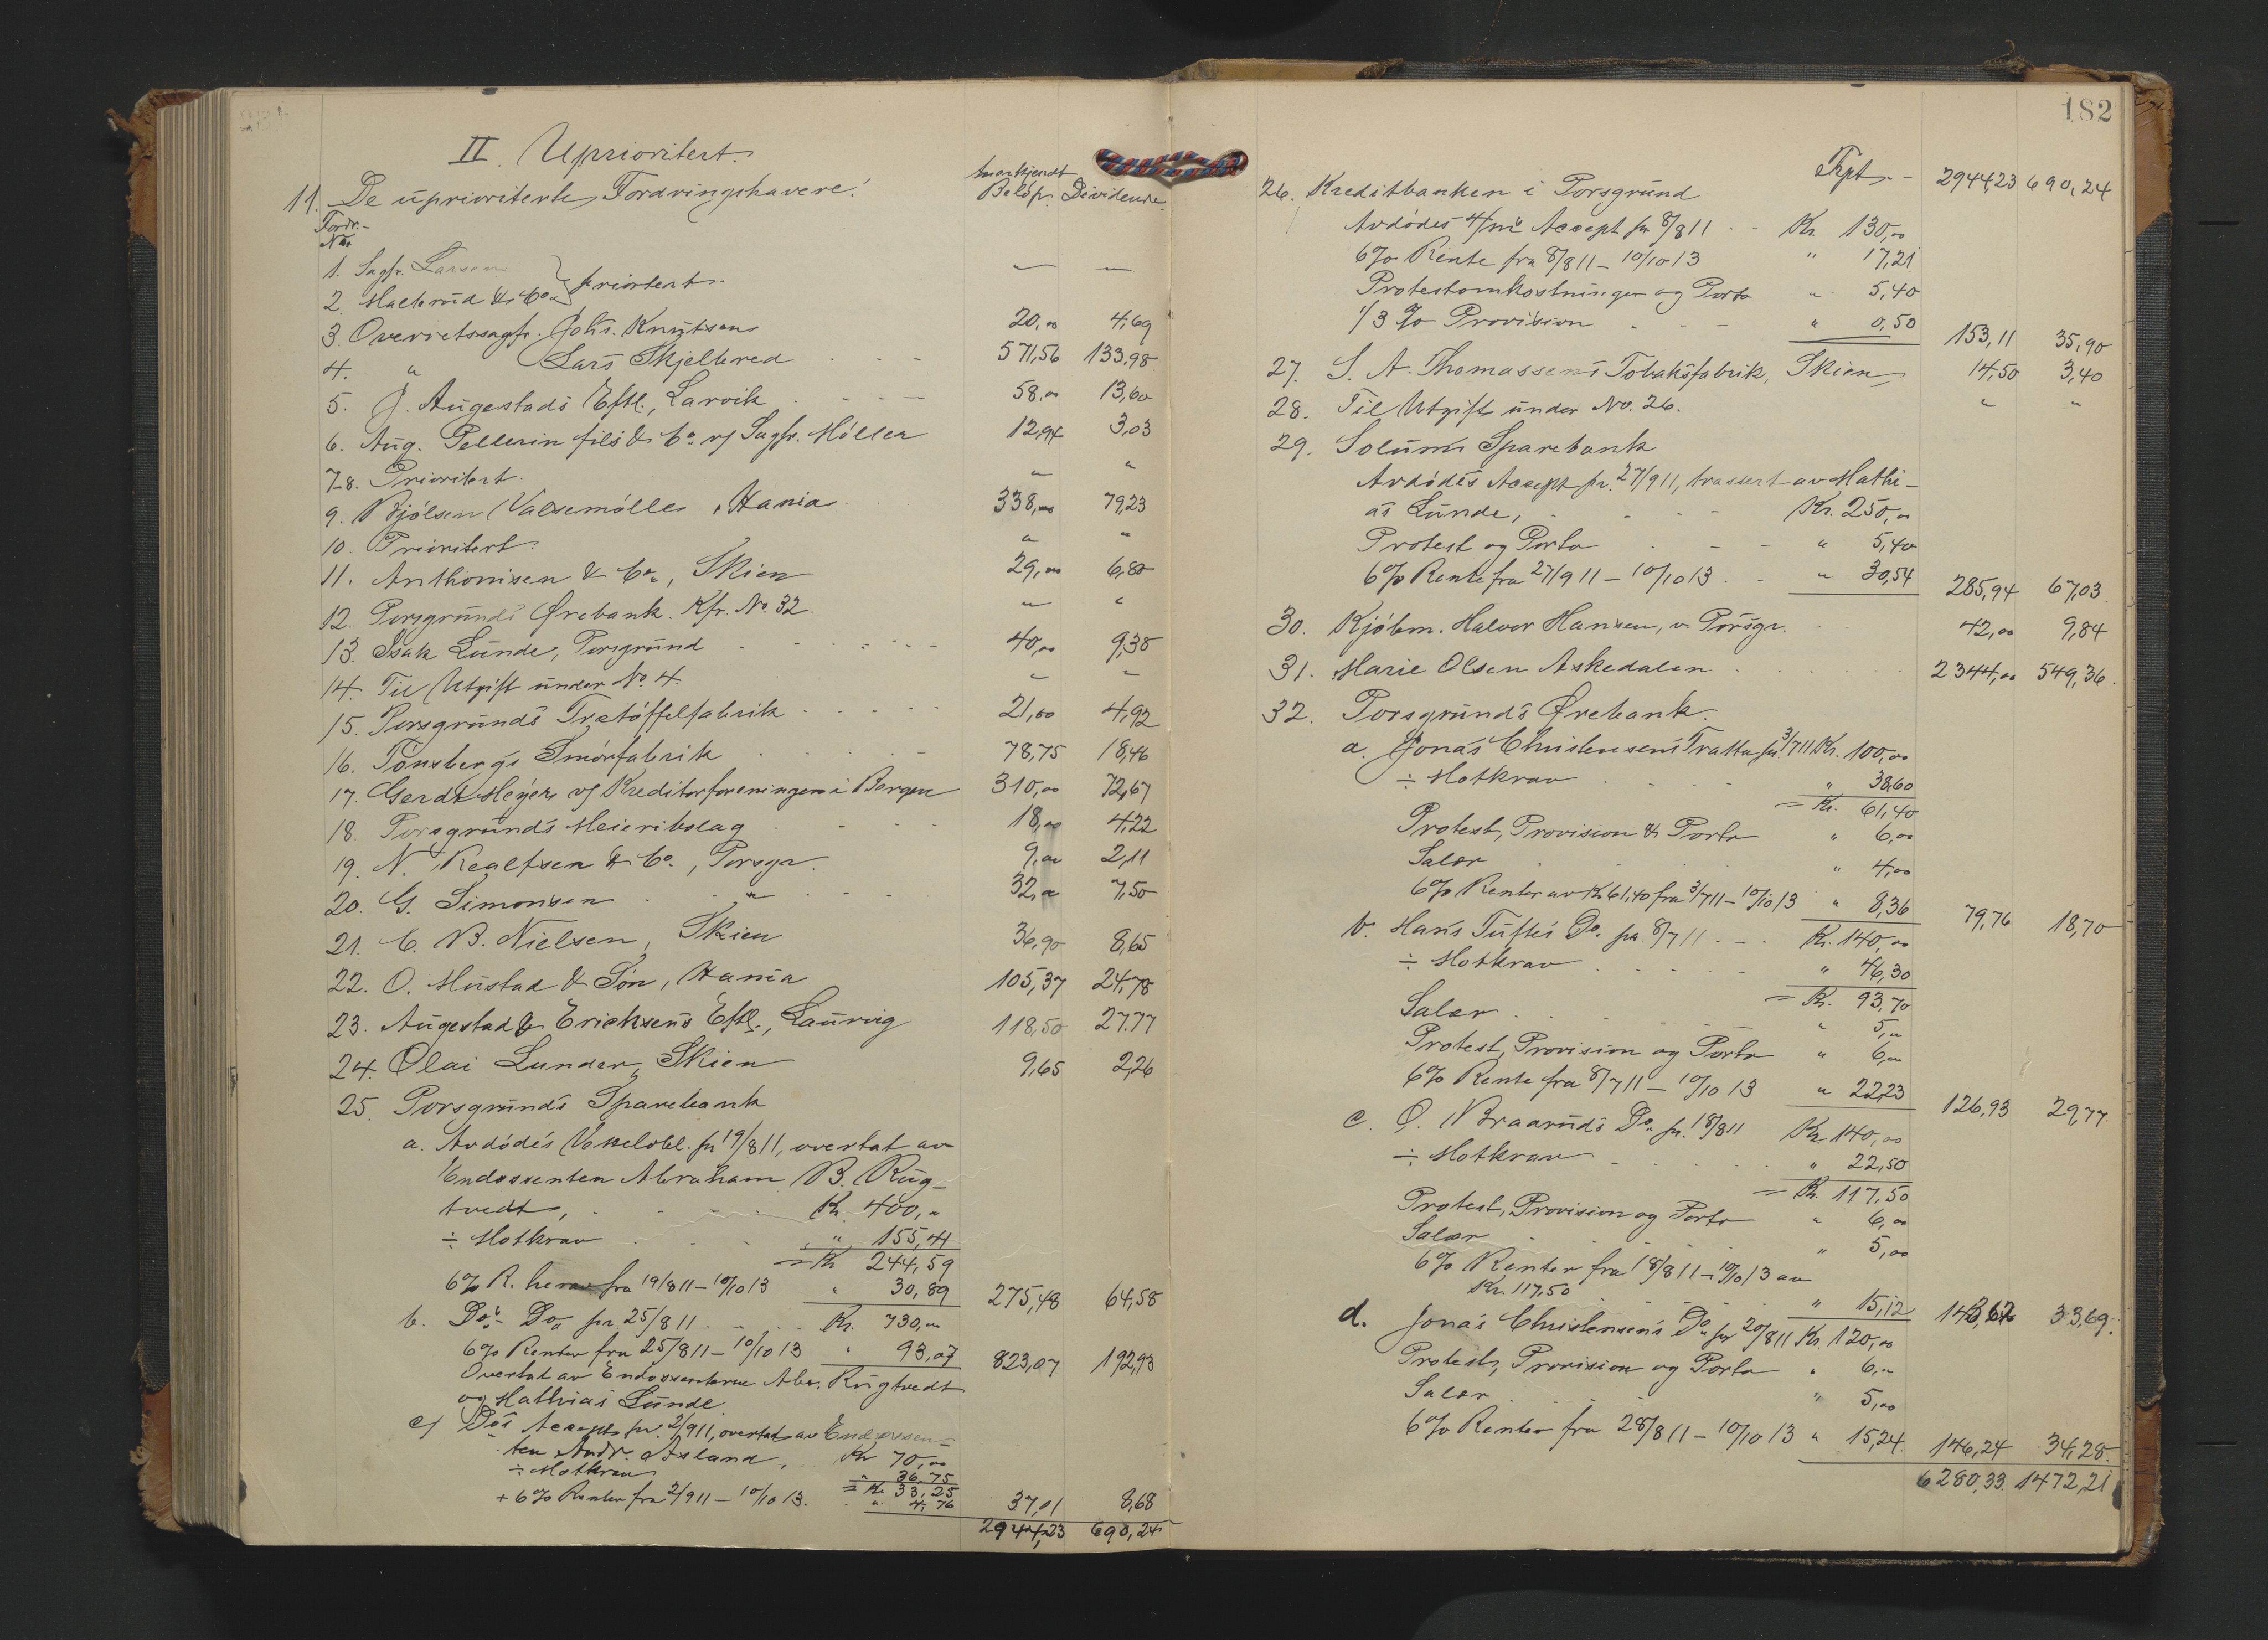 II. Uprioritert.
Anerkjendt
11. De uprioriterte Fordringshavere: Beløp. Dividende.
Fordr.-
No.
1. Sagfr. Larsen } prioritert. " "
2. Halvorsrud & Co.
3. Overretssagfr. Johs. Knutsen 20,00 4,69
4. " Lars Skjelbred 571,56 133,98
5. J. Augestads Eftl., Larvik 58,00 13,60
6. Aug. Pellerin fils & Co. v/ Sagfr. Møller 12,94 3,03
7-8. Prioritert. " "
9. Bjølsen Valsemølle, Kania 338,00 79,23
10. Prioritert. " "
11. Anthonisen & Co., Skien 29,00 6,80
12. Porsgrunds Ørebank. Kfr. No. 32. " "
13. Isak Lunde, Porsgrund 40,00 9,38
14. Til Utgift under No. 4. " "
15. Porsgrunds Trætøffelfabrik 21,00 4,92
16. Tønsbergs Smørfabrik 78,75 18,46
17. Gerdt Meyer v/ Kreditorforeningen i Bergen 310,00 72,67
18. Porsgrunds Meieribolag 18,00 4,22
19. N. Realfsen & Co., Porsgr. 9,00 2,11
20. G. Simonsen " 32,00 7,50
21. C. B. Nielsen, Skien 36,90 8,65
22. O. Mustad & Søn, Kania 105,37 24,78
23. Augestad & Ericksens Eftl., Laurvig 118,50 27.77
24. Olai Lunder, Skien 9,65 2,26
25. Porsgrunds Sparebank
a. Avdødes Vekselobl. pr 19/8 11, overtat av
Endossenten Abraham B. Rug-
tvedt, Kr. 400,"
÷ Motkrav " 155,41
= Kr 244,59
6% R. herav fra 19/8 11 - 10/10 13 " 30,89 275,48 64,58
b. Dos. Do. pr. 25/8 11 Kr. 730,00
6% Renter fra 25/8 11 - 10/10 13 " 93,07 823,07 192,93
Overtat av Endossenterne Abr. Rugtvedt
og Mathias Lunde.
c) Dos Accept pr. 2/9 11, overtat av Endossen-
ten Andr. Asland, Kr 70,00
÷ Motkrav " 36,75
= Kr. 33,25
+ 6% Renter fra 2/9 11 - 10/10 13. " 4,76 37,01 8,68
2944,23 690,24
182
Trpt. 2944,23 690,24
26. Kreditbanken i Porsgrund
Avdødes 4/m Accept pr 8/8 11 Kr. 130,00
6% Rente fra 8/8 11 - 10/10 13 " 17,21
Protestomkostninger og Porto " 5,40
1/3 % Provision " 0,50 153,11 35,90
27. S. A. Thomassens Tobaksfabrik, Skien 14,50 3,40
28. Til Utgift under No. 26. " "
29. Solums Sparebank
Avdødes Accept pr. 27/9 11, trassert av Mathi-
as Lunde, Kr. 250,00
Protest og Porto " 5,40
6% Rente fra 27/9 11 - 10/10 13 " 30,54 285,94 67,03
30. Kjøbm. Halvor Hansen, v. Porsgr. 42,00 9,84
31. Marie Olsen Askedalen 2344,00 549,36
32. Porsgrunds Ørebank.
a. Jonas Christensens Tratta pr. 3/7 11 Kr. 100,00
÷ Motkrav " 38,60
= Kr. 61,40
Protest, Provision & Porto " 6,00
Salær " 4,00
6% Renter av Kr 61,40 fra 3/7 11 - 10/10 13 " 8,36 79,76 18,70
b. Hans Tuftes Do. pr. 8/7 11 Kr. 140,00
÷ Motkrav " 46,30
= Kr. 93,70
Salær " 5,"
Protest, Provision og Porto " 6,00
6% Rente fra 8/7 11 - 10/10 13 " 22,23 126,93 29,77
c. O. Braaruds Do. pr. 18/8 11 Kr. 140,00
÷ Motkrav " 22,50
= Kr. 117,50
Protest, Provision og Porto " 6,00
Salær " 5,00
6% Renter fra 18/8 11 - 10/10 13 av
Kr. 117,50 " 15,12 143,62 33,69.
d. Jonas Christensens Do. pr 20/8 11 Kr. 120,00
Protest, Provision og Porto " 6,"
Salær " 5,00
6% Renter fra 28/8 11 - 10/10 13 " 15,24 146,24 34,28.
6280,33. 1472,21